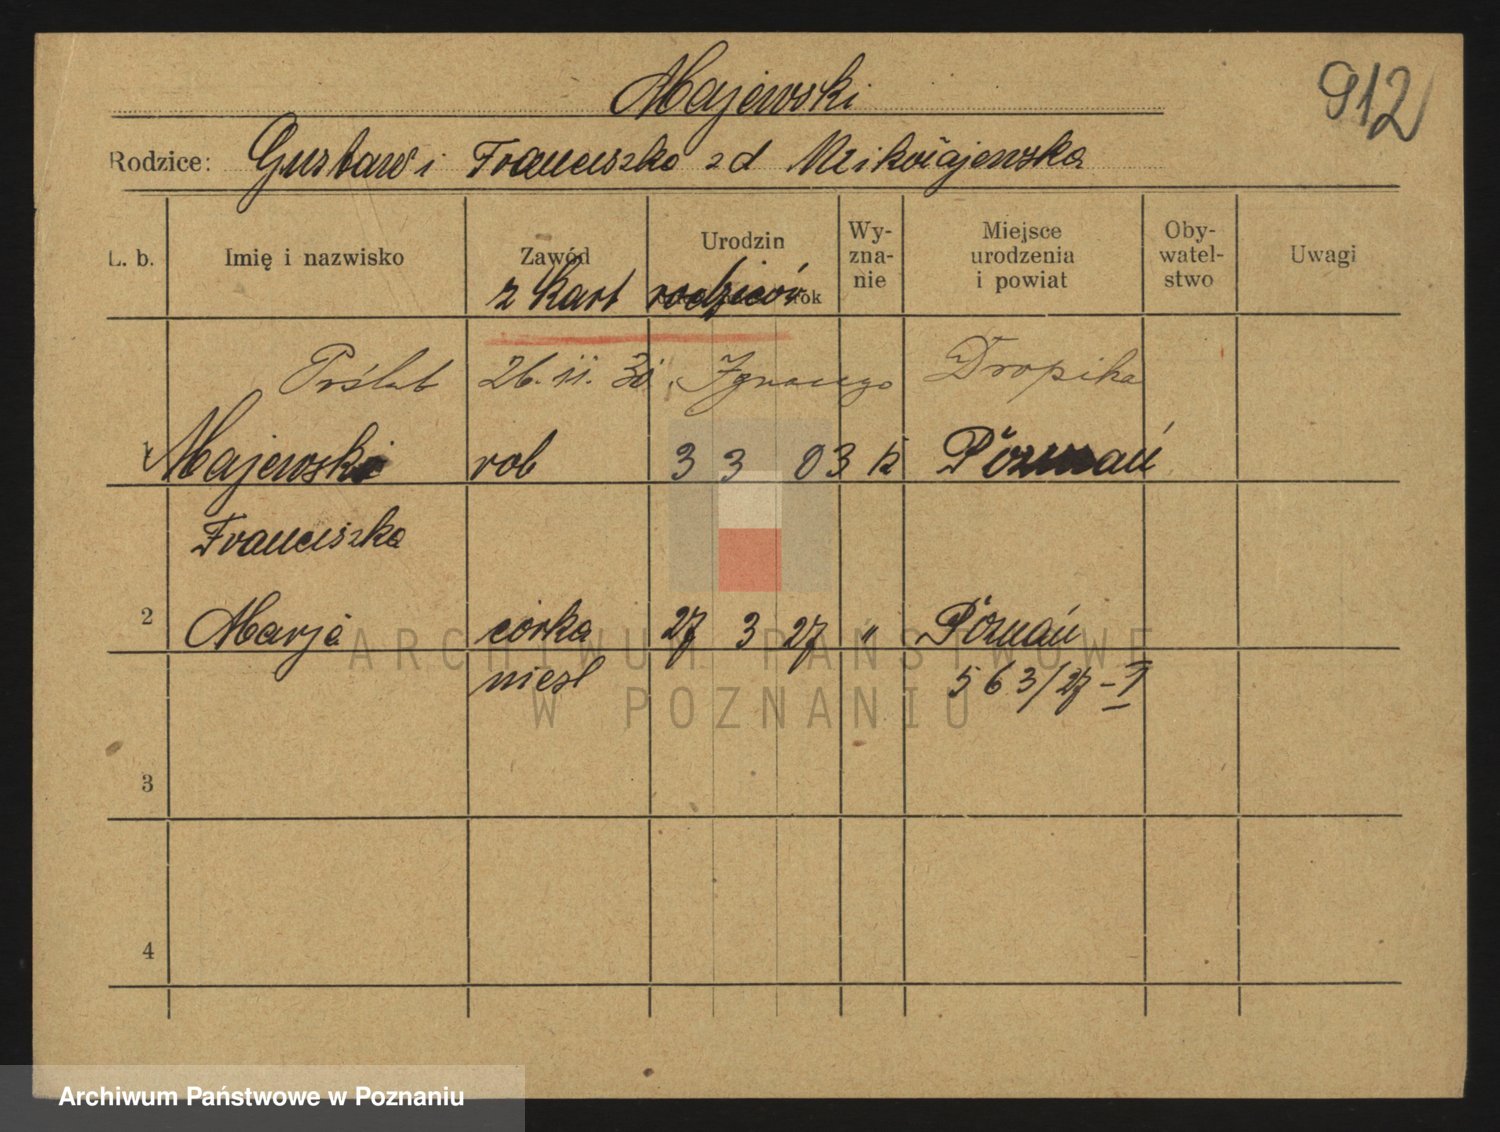 Majewski
912
Rodzice: Gustaw i Franciszka zd Mikołajewska
L. b. Imię i nazwisko Zawód Urodzin rok Wy-zna-nie Miejsce urodzenia i powiat Oby-watel-stwo Uwagi
z kart rodziców
26. 11. 30. Ignacego Dropika
1 Majewska rob 3 3 03 k Poznań
Franciszka
2 Marja córka 27 3 27 " Poznań
nieśl 563/27-I
3
4
ARCHIWUM PAŃSTWOWE
W POZNANIU
Archiwum Państwowe w Poznaniu